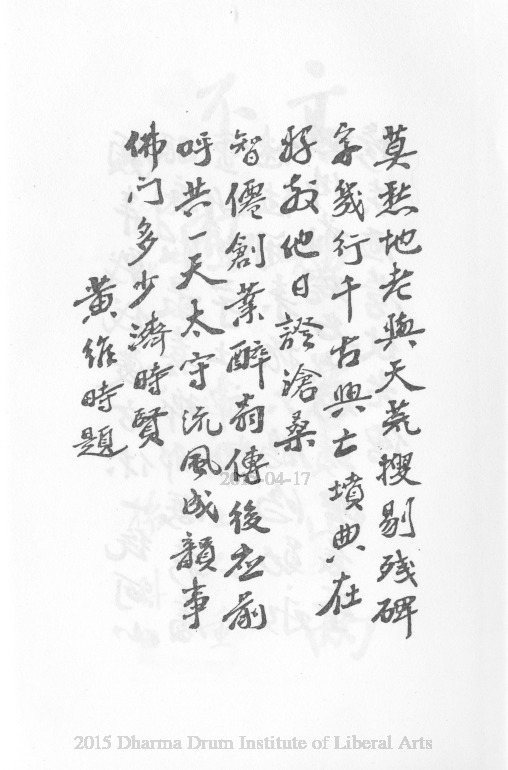 莫愁地老與天荒搜剔残碑
字幾行千古興亡墳典在
好教他日證滄桑
智僊創業醉翁傳後应前
呼共一天太守流風成韻事
佛门多少濟時賢
黃維時題
-04-17
2015 Dharma Drum Institute of Liberal Arts